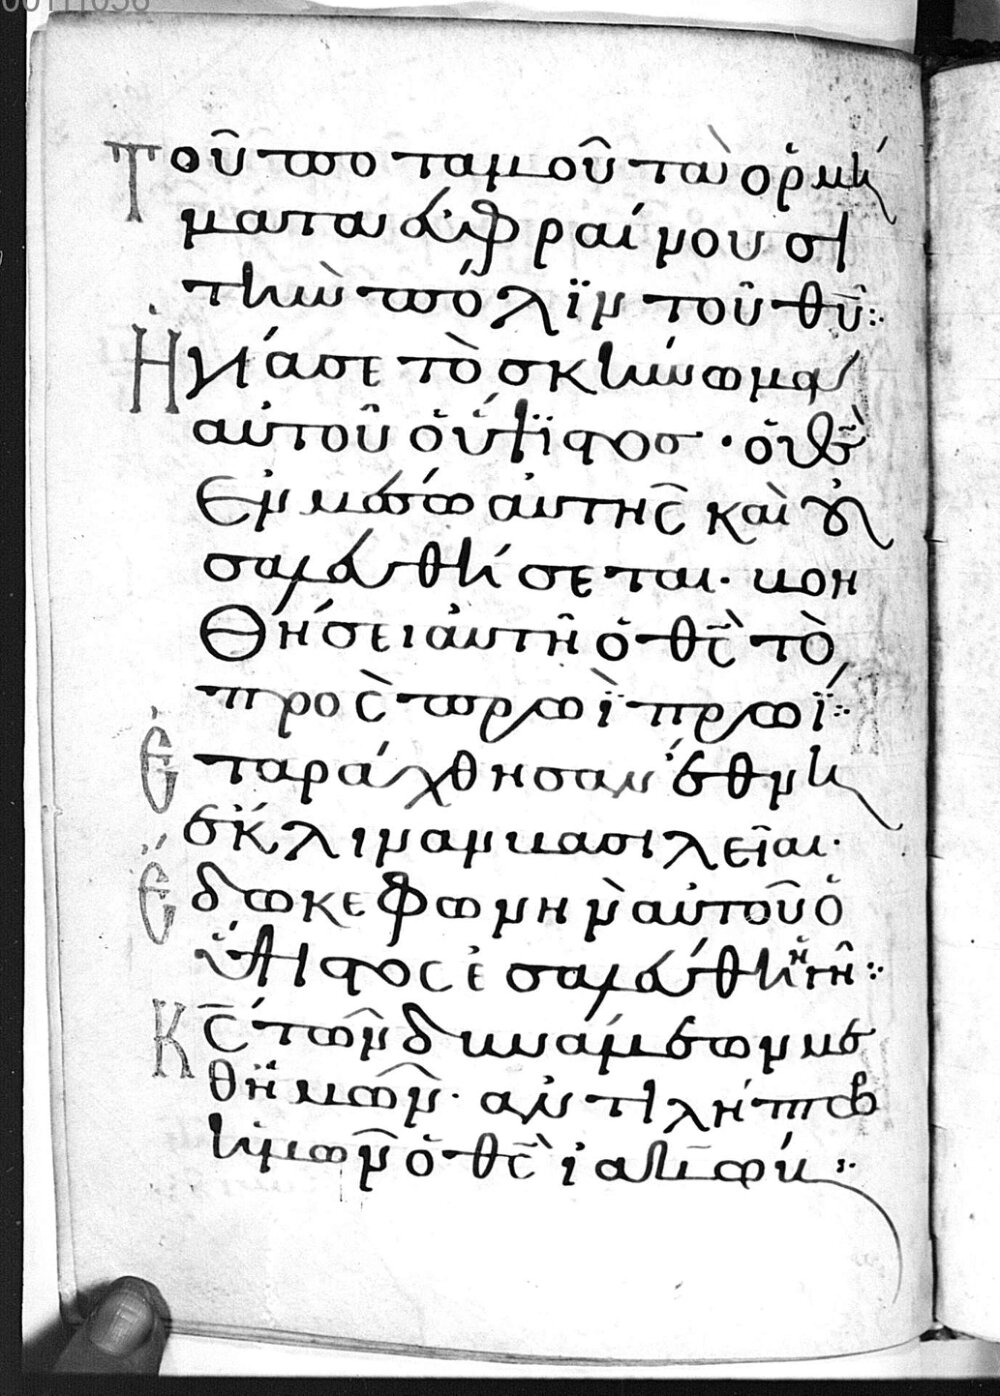 00111056
Τοῦ ποταμοῦ τὰ ὁρμή
ματα ἐυφραίνουσι
τὴν πόλϊν τοῦ θῦ:
Ἡγίασε τὸ σκήνωμα
αὐτοῦ ὁ ὕψϊστος · ὁ θς
ἐν μέσω αὐτῆς καὶ οὐ
σαλευθήσεται · βοη
θήσει ἀυτῆ ὁ θς τὸ
πρὸς πρωῒ πρωΐ:
Ἐταράχθησαν ἔθνη
ἔκλιναν βασιλεῖαι ·
Ἔδωκε φωνὴν αὐτοῦ ὁ
ὕψιστος ἐσαλεύθη ἡ γῆ:
Κς τῶν δυνάμεων με
θ' ἡμῶν · ἀντιλήπτωρ
ἡμῶν ὁ θς ἰακώβ: